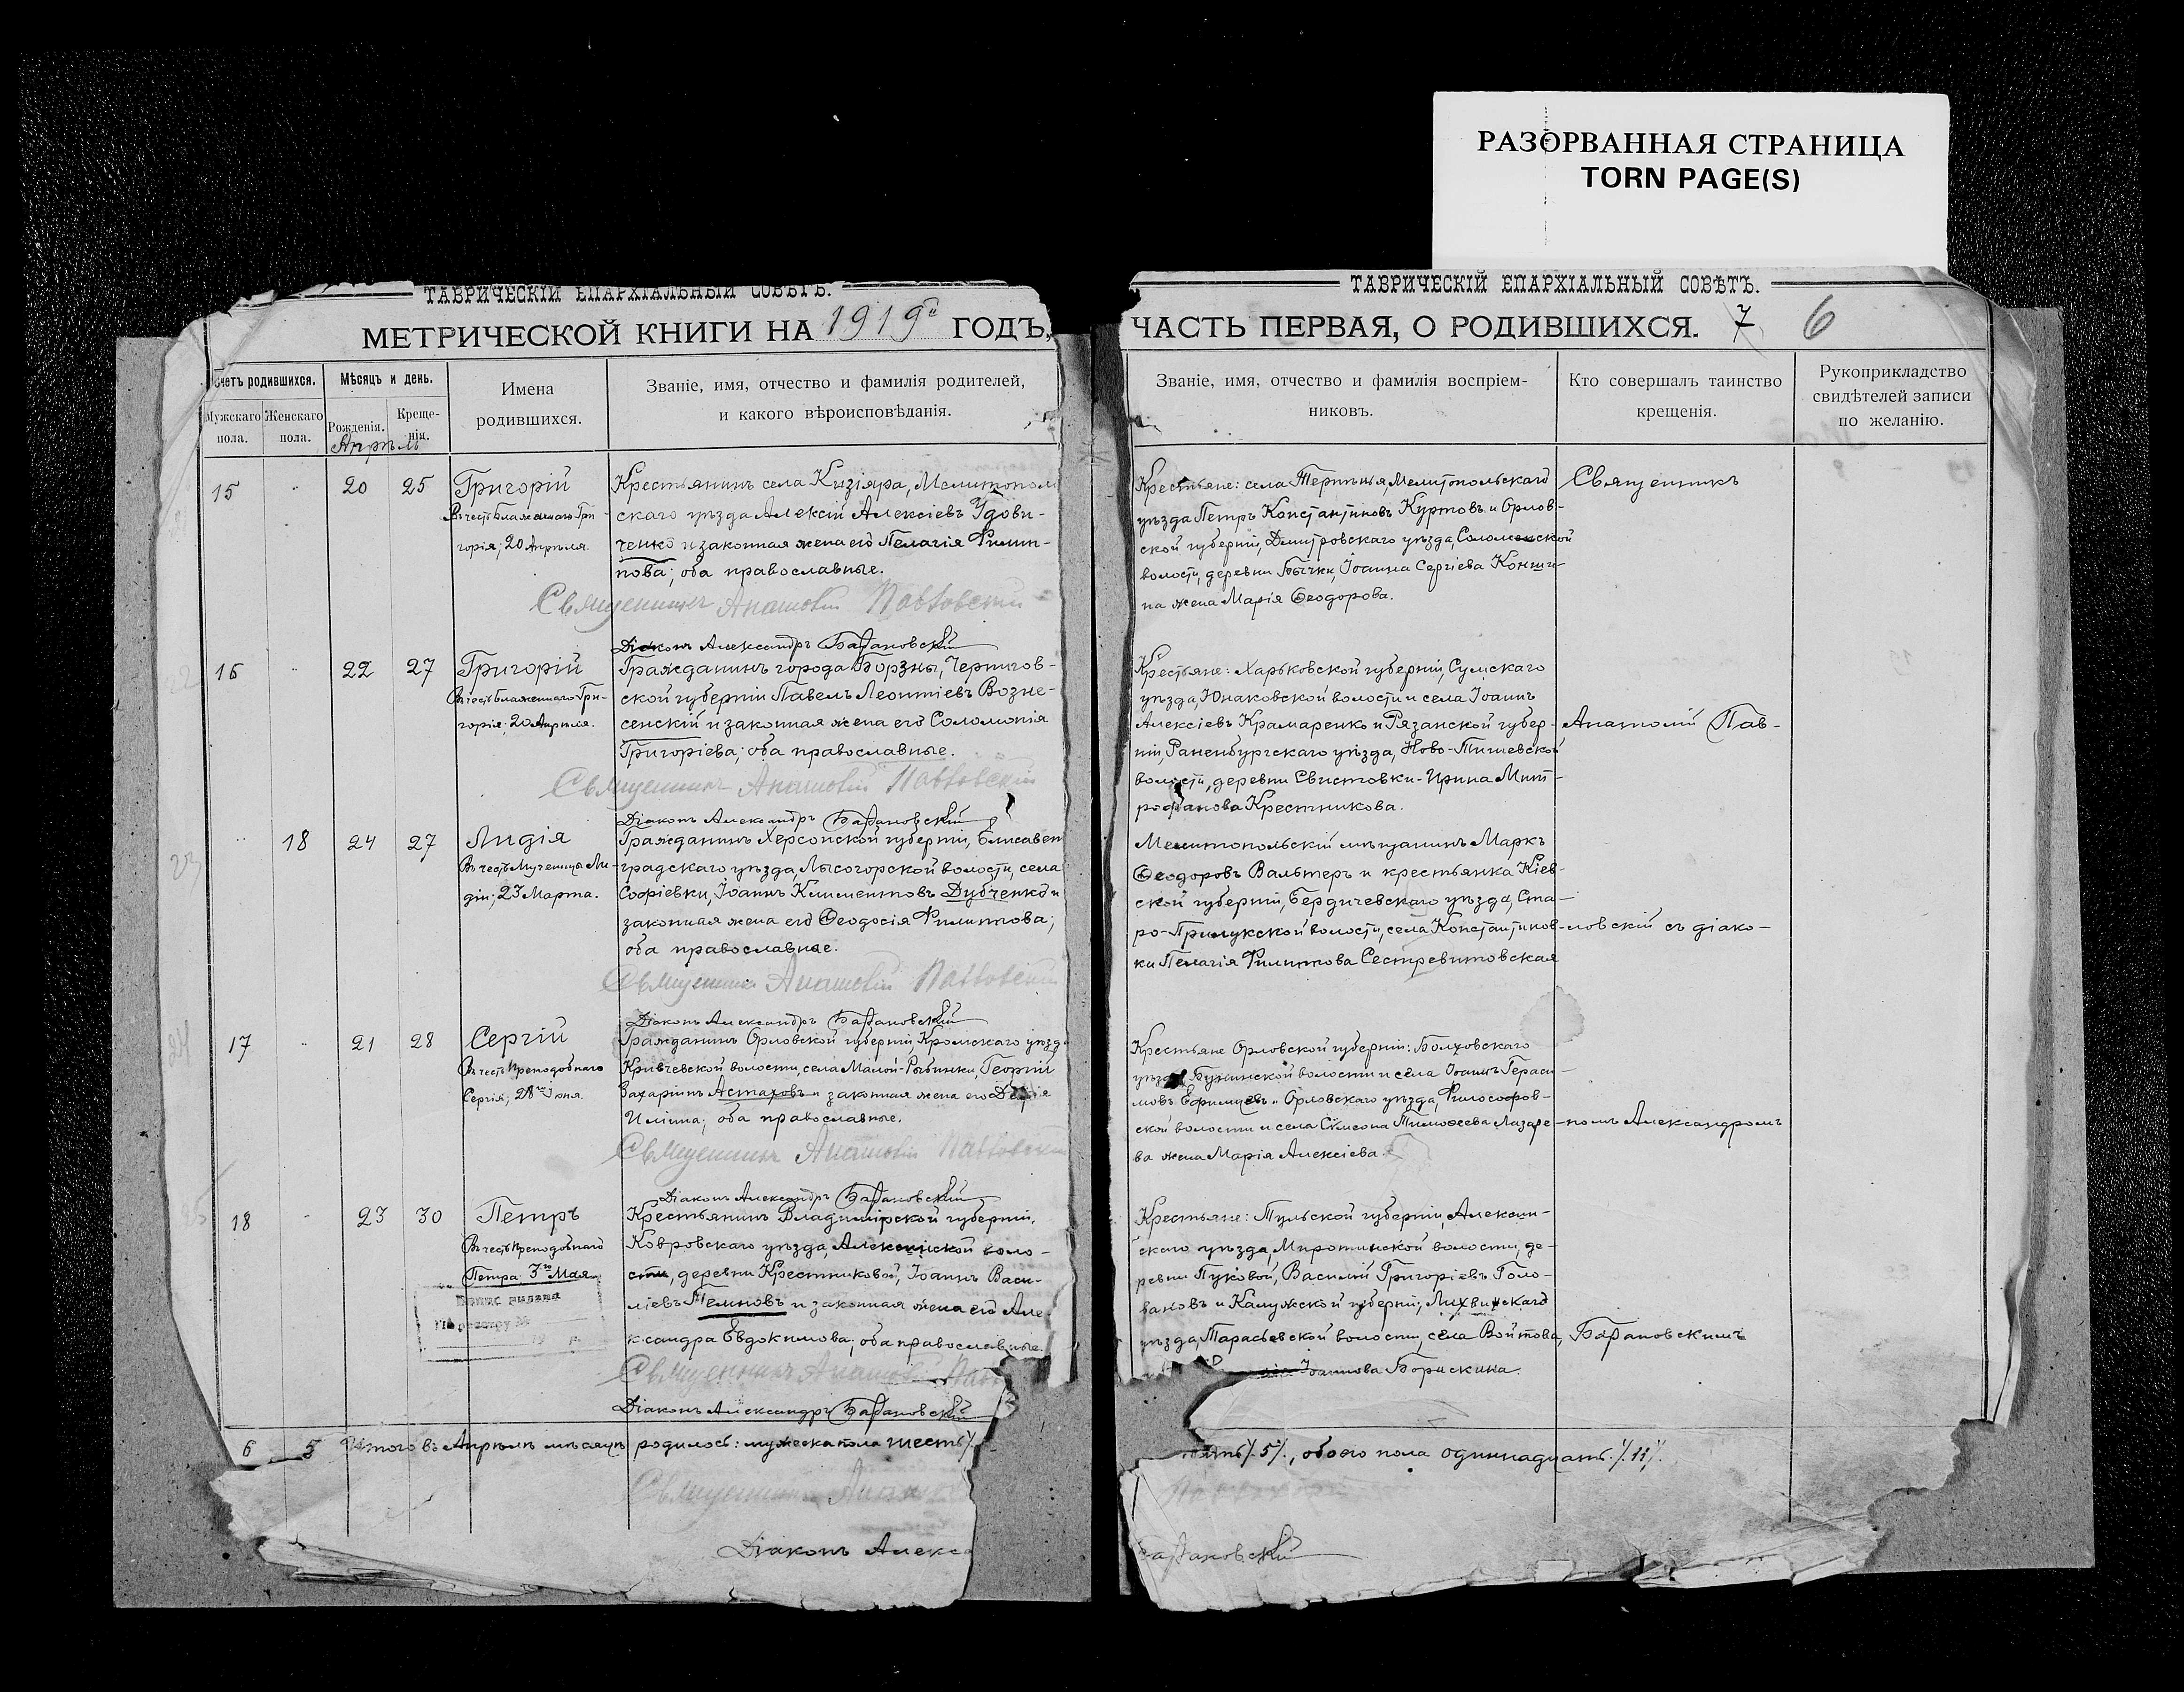 РАЗОРВАННАЯ СТРАНИЦА
TORN PAGE(S)
ТАВРИЧЕСКІЙ ЕПАРХІАЛЬНЫЙ СОВѢТЪ.
МЕТРИЧЕСКОЙ КНИГИ НА 1919й ГОДЪ,
Счетъ родившихся.
Мѣсяцъ и день.
Имена
родившихся.
Званіе, имя, отчество и фамилія родителей,
и какого вѣроисповѣданія.
Мужскаго
пола.
Женскаго
пола.
Рожденія.
Креще-
нія.
Апрѣль
15 20 25 Григорій
Въ честь Блаженнаго Гри-
горія; 20 Апрѣля.
Крестьянинъ села Кизіяра, Мелитополь
скаго уѣзда Алексій Алексіевъ Удови-
ченко и законная жена его Пелагія Филип-
пова; оба православные.
Священникъ Анатолій Павловскій
Діаконъ Александръ Барановскій
16 22 27 Григорій
Въ честь блаженнаго Гри-
горія; 20 Апрѣля.
Гражданинъ города Борзны, Чернигов-
ской губерніи Павелъ Леонтіевъ Возне-
сенскій и законная жена его Соломонія
Григоріева; оба православные.
Священникъ Анатолій Павловскій
Діаконъ Александръ Барановскій
18 24 27 Лидія
Въ честь Мученицы Ли-
діи; 23 Марта.
Гражданинъ Херсонской губерніи, Елисавет
градскаго уѣзда, Лысогорской волости, села
Софіевки, Іоаннъ Климентовъ Дубченко и
законная жена его Ѳеодосія Филиппова;
оба православные.
Священникъ Анатолій Павловскій
Діаконъ Александръ Барановскій
17 21 28 Сергій
Въ честь Преподобнаго
Сергія; 28го Іюня.
Гражданинъ Орловской губерніи, Кромскаго уѣзда
Кривчевской волости, села Малой-Рыбинки, Георгій
Захаріинъ Астаховъ и законная жена его
Иліина; оба православные.
Священникъ Анатолій Павловскій
Діаконъ Александръ Барановскій
18 23 30 Петръ
Въ честь Преподобнаго
Петра 3го Мая
Крестьянинъ Владимірской губерніи,
Ковровскаго уѣзда, Алексинской воло-
сти, деревни Крестниковой, Іоаннъ Васи-
ліевъ Темновъ и законная жена его Але-
ксандра Евдокимова; оба православные.
Священникъ Анатолій
Діаконъ Александръ Барановскій
6 5 Итого въ Апрѣлѣ мѣсяцѣ родилось: мужеска пола шесть
Священникъ
Діаконъ Алекса
ТАВРИЧЕСКІЙ ЕПАРХІАЛЬНЫЙ СОВѢТЪ.
ЧАСТЬ ПЕРВАЯ, О РОДИВШИХСЯ. 7 6
Званіе, имя, отчество и фамилія воспріем-
никовъ.
Кто совершалъ таинство
крещенія.
Рукоприкладство
свидѣтелей записи
по желанію.
Крестьяне: села Терпѣнья, Мелитопольскаго
уѣзда Петръ Константиновъ Куртовъ и Орлов-
ской губерніи, Дмитровскаго уѣзда, Соломенской
волости, деревни Бычки, Іоанна Сергіева Конши-
на жена Марія Ѳеодорова.
Священникъ
Крестьяне: Харьковской губерніи, Сумскаго
уѣзда, Юнаковской волости и села Іоаннъ
Алексіевъ Крамаренко и Рязанской губер-
ніи, Раненбургскаго уѣзда, Ново-Тишевской
волости, деревни Свистовки - Ирина Мит-
рофанова Крестникова.
Анатолій Пав-
Мелитопольскій мѣщанинъ Маркъ
Ѳеодоровъ Вальтеръ и крестьянка Кіев-
ской губерніи, Бердичевскаго уѣзда, Ста-
ро-Прилукской волости, села Константинов-
ки Пелагія Филиппова Сестревитовская
ловскій съ діако-
Крестьяне Орловской губерніи: Болховскаго
уѣзда, Бунинской волости и села Іоаннъ Гераси-
мовъ Ефимцевъ и Орловскаго уѣзда, Философов-
ской волости и села Симеона Тимоѳеева Лазаре-
ва жена Марія Алексіева.
номъ Александромъ
Крестьяне: Тульской губерніи, Алексин-
скаго уѣзда, Миротинской волости, де-
ревни Пуковой, Василій Григоріевъ Голо-
вановъ и Калужской губерніи, Лихвинскаго
уѣзда, Тарасьевской волости, села Войтова,
Іоаннова Борискина.
Барановскимъ
пять /.5/., обоего пола одиннадцать /.11/.
Барановскій